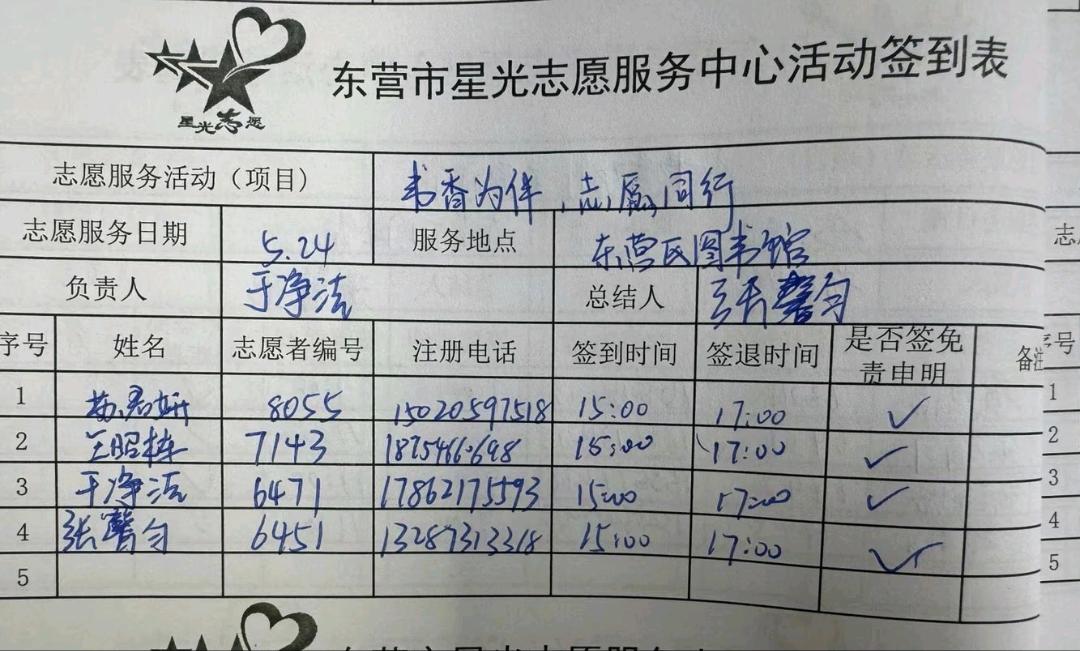 星光志愿
东营市星光志愿服务中心活动签到表
志愿服务活动（项目） 书香为伴，志愿同行
志愿服务日期 5.24 服务地点 东营区图书馆
负责人 于净洁 总结人 张馨匀
序号 姓名 志愿者编号 注册电话 签到时间 签退时间 是否签免责申明 备注
1 8055 15020597518 15:00 17:00 ✓
2 7143 18754660698 15:00 17:00 ✓
3 于净洁 6471 17862175593 15:00 17:00 ✓
4 张馨匀 6451 13287313318 15:00 17:00 ✓
5
序号
1
2
3
4
5